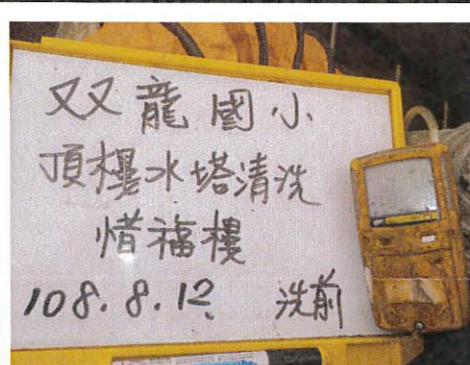 双龍國小
頂樓水塔清洗
惜福樓
108.8.12. 洗前